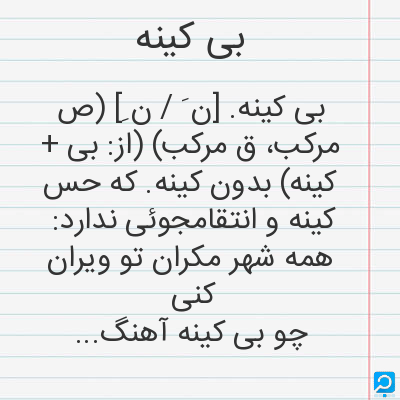 بی کینه
بی کینه. [ن َ / ن ِ] (ص
مرکب، ق مرکب) (از: بی +
کینه) بدون کینه. که حس
کینه و انتقامجوئی ندارد:
همه شهر مکران تو ویران
کنی
چو بی کینه آهنگ...